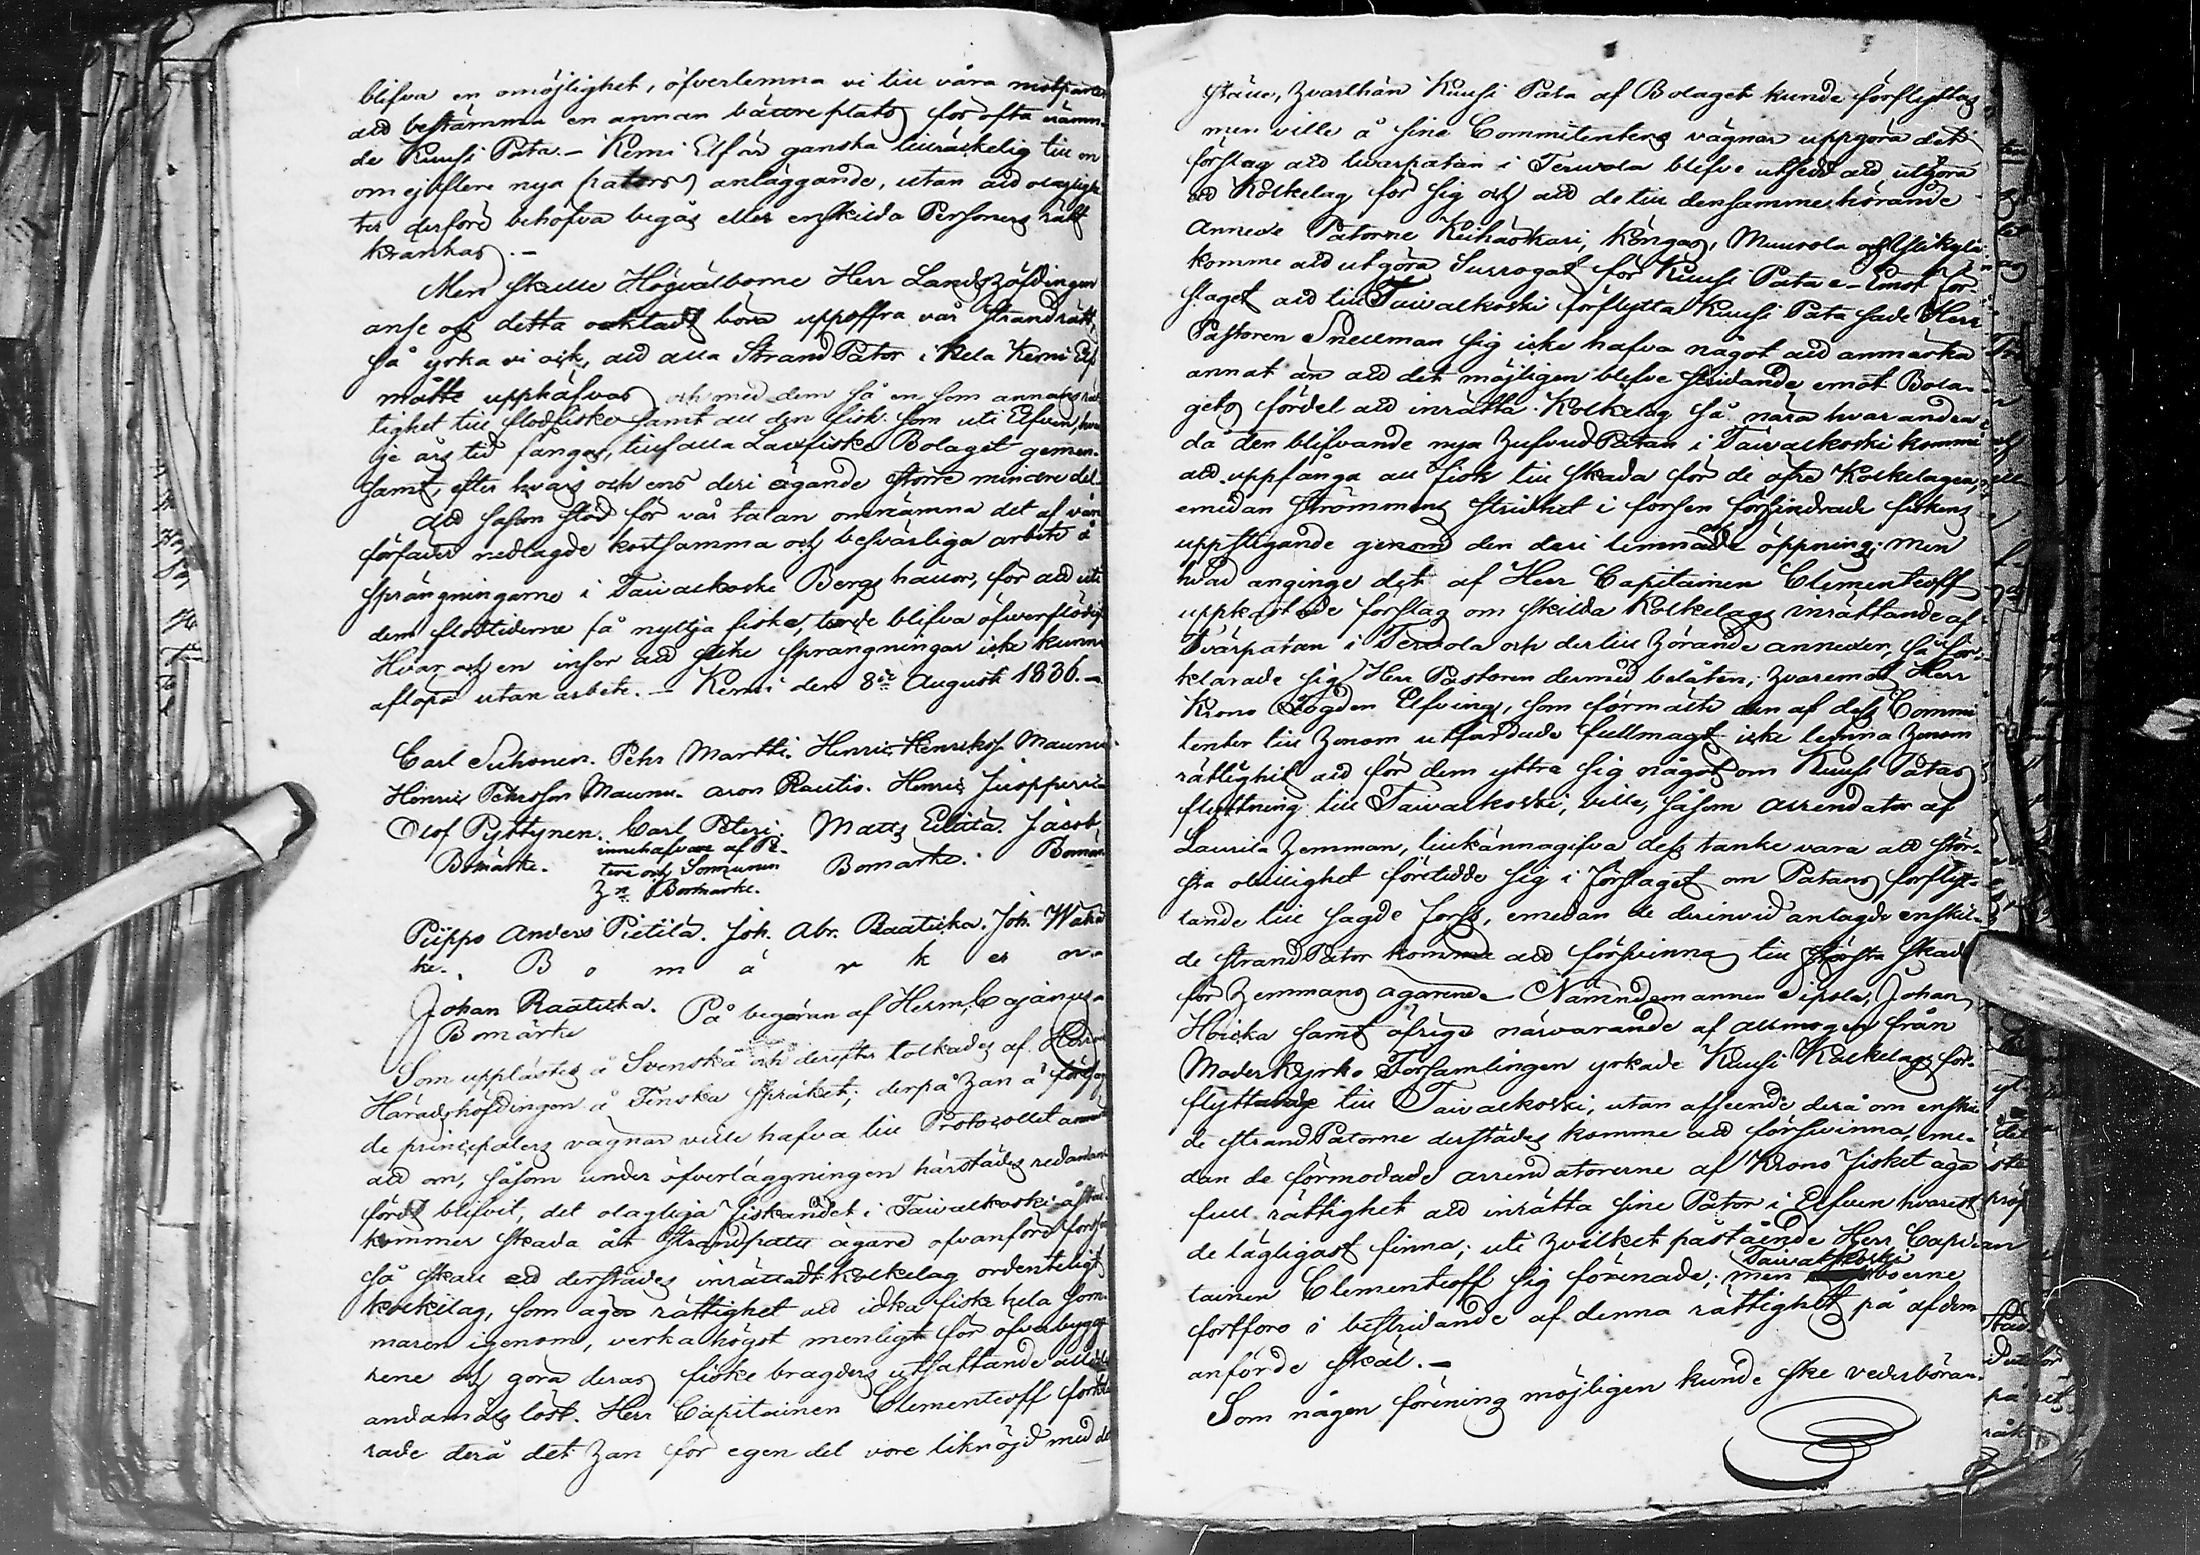 blifva en omöjlighet, öfverlemna vi till våra motparter
att bestämma en annan bättre plats för ofta nämn-
de Kuusi Pata. - Kemi Elf är ganska tillräckelig till en
om ej flere nya pators anläggande, utan att olaglighe-
ter derföre behöfva begås eller enskilda Personers rätt
kränkas. -
Men skulle Högvälborne Herr Landshöfdingen
anse oss detta oaktadt böra uppoffra vår strandrätt,
så yrka vi ock, att alla Strand Pator i hela Kemi Elf
måtte upphäfvas och med dem så en som annans rät-
tighet till flodfiske samt all den fisk som uti Elfven, hvar-
je årstid fångas, tillfalla Laxfiske Bolaget gemen-
samt, efter hvars och ens deri ägande större mindre del.
Att såsom stöd för vår talan omnämna det af våra
förfäder nedlagde kostsamma och besvärliga arbete å
sprängningarne i Taivalkoski Bergshällar, för att uti
dem flodtiderne få nyttja fiske, torde blifva öfverflödigt
Hvar och en inser att slike sprängningar icke kunna
aflöpa utan arbete. - Kemi den 8de Augusti 1836. -
Carl Suhonen. Pehr Martti. Henric Henriksson Maunu.
Henric Pehrsson Maunu. Aron Rautio. Henric Juopperi.
Olof Pyttynen. Carl Peteri. Matts Eilita. Jacob
Bomärke. innehafvare af Pe- Bomärke. Bomärke
teri och Sommunen
Hn Bomärke.
Piippo Anders Pietilä. Joh. Abr. Raatikka. Joh. Waha
ke. B o m ä r k e n.
Johan Raatikka. På begäran af Herm. Cajanus
Bomärke
Som upplästes å Svenska och derefter tolkades af Herr
Häradshöfdingen å Finska språket; derpå han å förenäm-
de principalers vägnar ville hafva till Protocollet anmärk-
adt om, såsom under öfverläggningen härstädes redan an-
fördt blifvit, det olagliga fiskandet i Taivalkoski åstad-
kommer skada åt strandpatu ägare ofvanföre forsen
så skall ett derstädes inrättadt Kolkelag ordenteligt
kolkelag, som äger rättighet att idka fiske hela som-
maren igenom, verka högst menligt för ofvanbygga-
rene och göra deras fiske bragders utsättande alldeles
ändamålslöst. Herr Capitainen Clementeoff förkla-
rade derå det han för egen del vore liknöjd med det
ställe, hvarthän Kuusi Pata af Bolaget kunde förflyttas
men ville å sine Committenters vägnar uppgöra det
förslag att tvärpatan i Terwola blefve utsedd att utgöra
ett Kolkelag för sig och att de till densamma hörande
Annexe Patorne Keihäskari, Köngas, Muurola och Ylikylä
komme att utgöra Surrogat för Kuusi Pata. - Emot för-
slaget att till Taivalkoski förflytta Kuusi Pata sade Herr
Pastoren Snellman sig icke hafva något att anmärka
annat än att det möjligen blefve stridande emot Bola-
gets fördel att inrätta Kolkelag så nära hvarandra
då den blifvande nya Hufvud Patan i Taivalkoski komme
att uppfånga all fisk till skada för de öfre Kolkelagen,
emedan strömmens stridhet i forsen förhindrade fiskens
uppstigande genom den deri lemnade öppning; men
hvad anginge det af Herr Capitainen Clementeoff
uppkastade förslag om skilda Kolkelags inrättande af
Tvärpatan i Terwola och dertill hörande annexer, så för-
klarade sig Herr Pastoren dermed belåten; hvaremot Herr
Krono Fogden Elfving, som förmälte den af dess Commi-
tenter till honom utfärdade fullmagt icke lemna honom
rättighet att för dem yttra sig något om Kuusi Patas
flyttning till Taivalkoski, ville, såsom arrendator af
Laurila Hemman, tillkännagifva dess tanke vara att stör-
sta obillighet företedde sig i förslaget om Patans förflyt-
tande till sagde fors, emedan de derinvid anlagde enskil-
de strand Pator komme att försvinna till största skada
för Hemmans ägarende Nämndemannen Sipola, Johan
Hoikka samt öfrige närvarande af allmogen från
Moderkyrko Församlingen yrkade Kuusi Kolkelags för-
flyttande till Taivalkoski, utan afseende derå om enskil-
de strand Patorne derstädes komme att försvinna, eme-
dan de förmodade arrendatorerne af Krono fisket äga
full rättighet att inrätta sine Pator i Elfven hvarest
de lägligast finna; uti hvilket påstående Herr Capi-
tainen Clementeoff sig förenade; men Taivalkoski boerne
fortforo i bestridande af denna rättighet på af dem
anförde skäl. -
Som någon förening möjligen kunde ske vederböran-